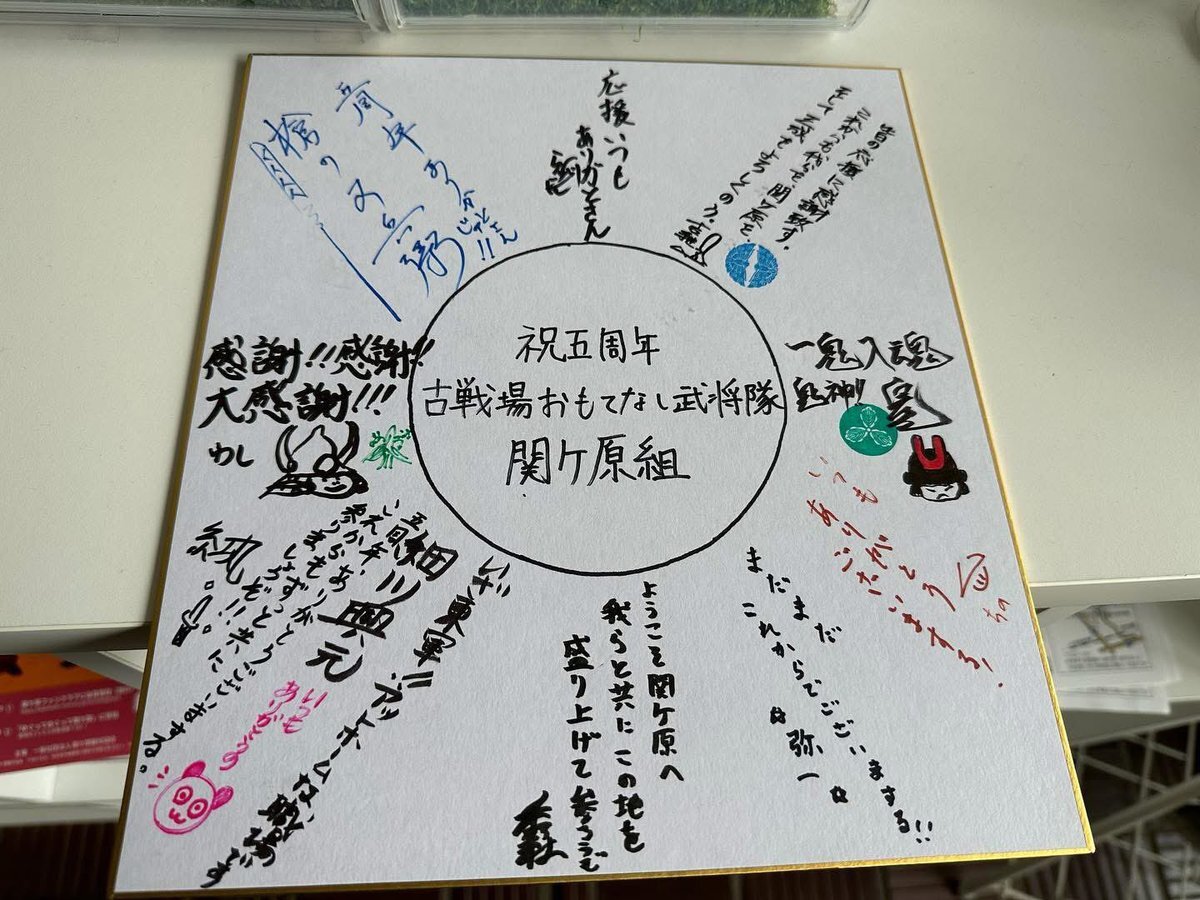 祝五周年
古戦場おもてなし武将隊
関ケ原組
応援いつも
ありがとさん
皆の応援に感謝致す。
これからも
関ケ原を
そして三成をよろしくのう。
一鬼入魂
鬼神!!
いつも
ありがとう
ございまする!
まだまだ
これからでございまする!!
☆弥一☆
ようこそ関ケ原へ
我らと共にこの地を
盛り上げて参ろうぞ
いざ東軍!!
アットホームな
職場です
細川興元
五周年、
これからも
ずっと共に
参りましょうぞ!!
ありがとうございまする。
いつも
ありがとうの
感謝!!感謝!!
大感謝!!!
わし
五周年
槍の又兵衛